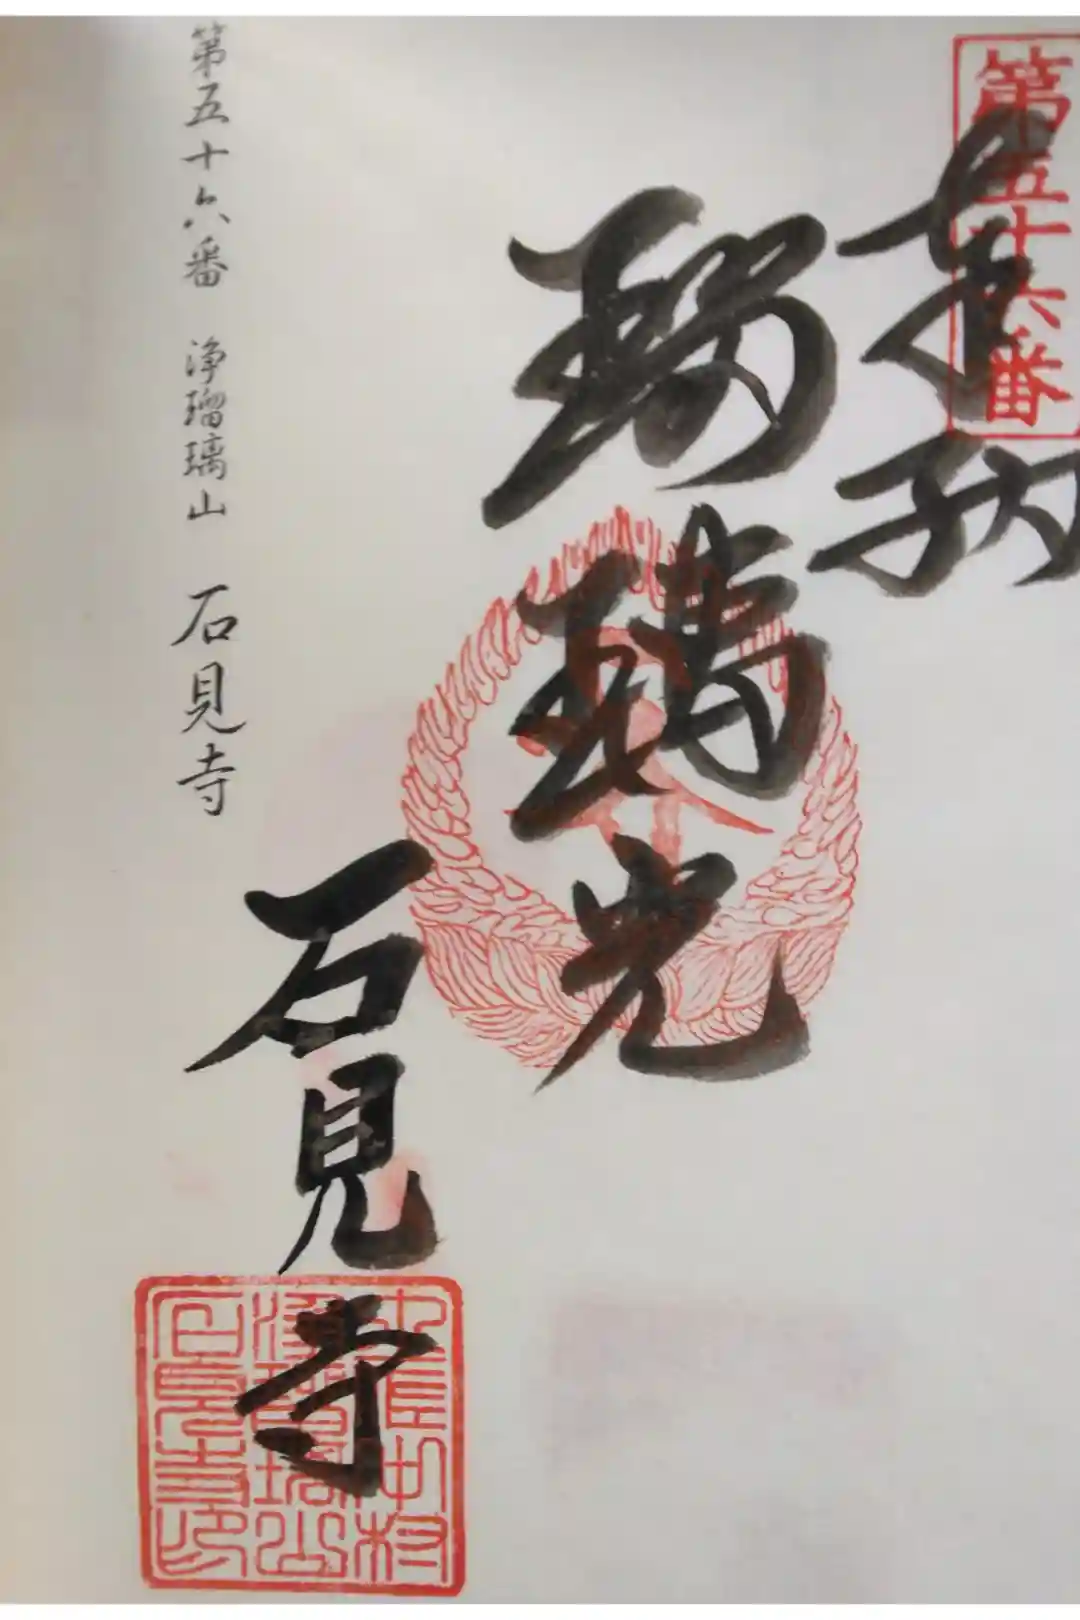 第五十六番
奉納
瑠璃光
石見寺
第五十六番 浄瑠璃山 石見寺
浄瑠璃山
石見寺印